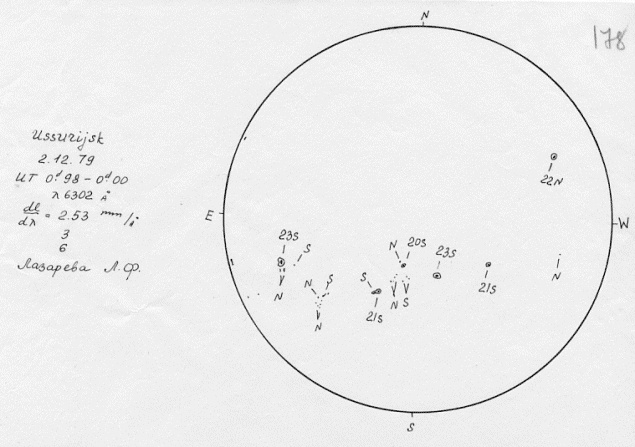 N
178
Ussurijsk
2.12.79
UT 0.ᵈ98 - 0.ᵈ00
λ 6302 Å
dl/dλ = 2.53 mm/Å
3
6
Лазарева Л.Ф.
22N
E
W
23S
S
N
20S
23S
N
S
S
21S
N
N
S
21S
N
N
S